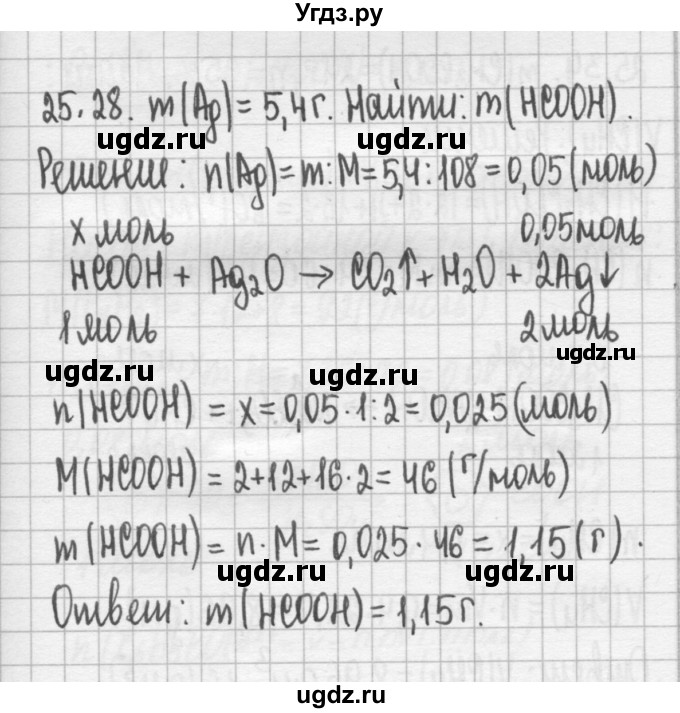 Угдз.ру
25.28. m(Ag) = 5,4г. Найти: m(HCOOH).
ugdz.ru ugdz.ru
Решение: n(Ag) = m:M = 5,4:108 = 0,05 (моль)
ugdz.ru ugdz.ru
x моль 0,05 моль
HCOOH + Ag₂O → CO₂↑ + H₂O + 2Ag↓
1 моль 2 моль
ugdz.ru ugdz.ru ugdz.ru
n(HCOOH) = x = 0,05·1:2 = 0,025 (моль)
ugdz.ru ugdz.ru
M(HCOOH) = 2+12+16·2 = 46 (г/моль)
m(HCOOH) = n·M = 0,025·46 = 1,15 (г).
ugdz.ru ugdz.ru
Ответ: m(HCOOH) = 1,15г.
ugdz.ru
ugdz.ru